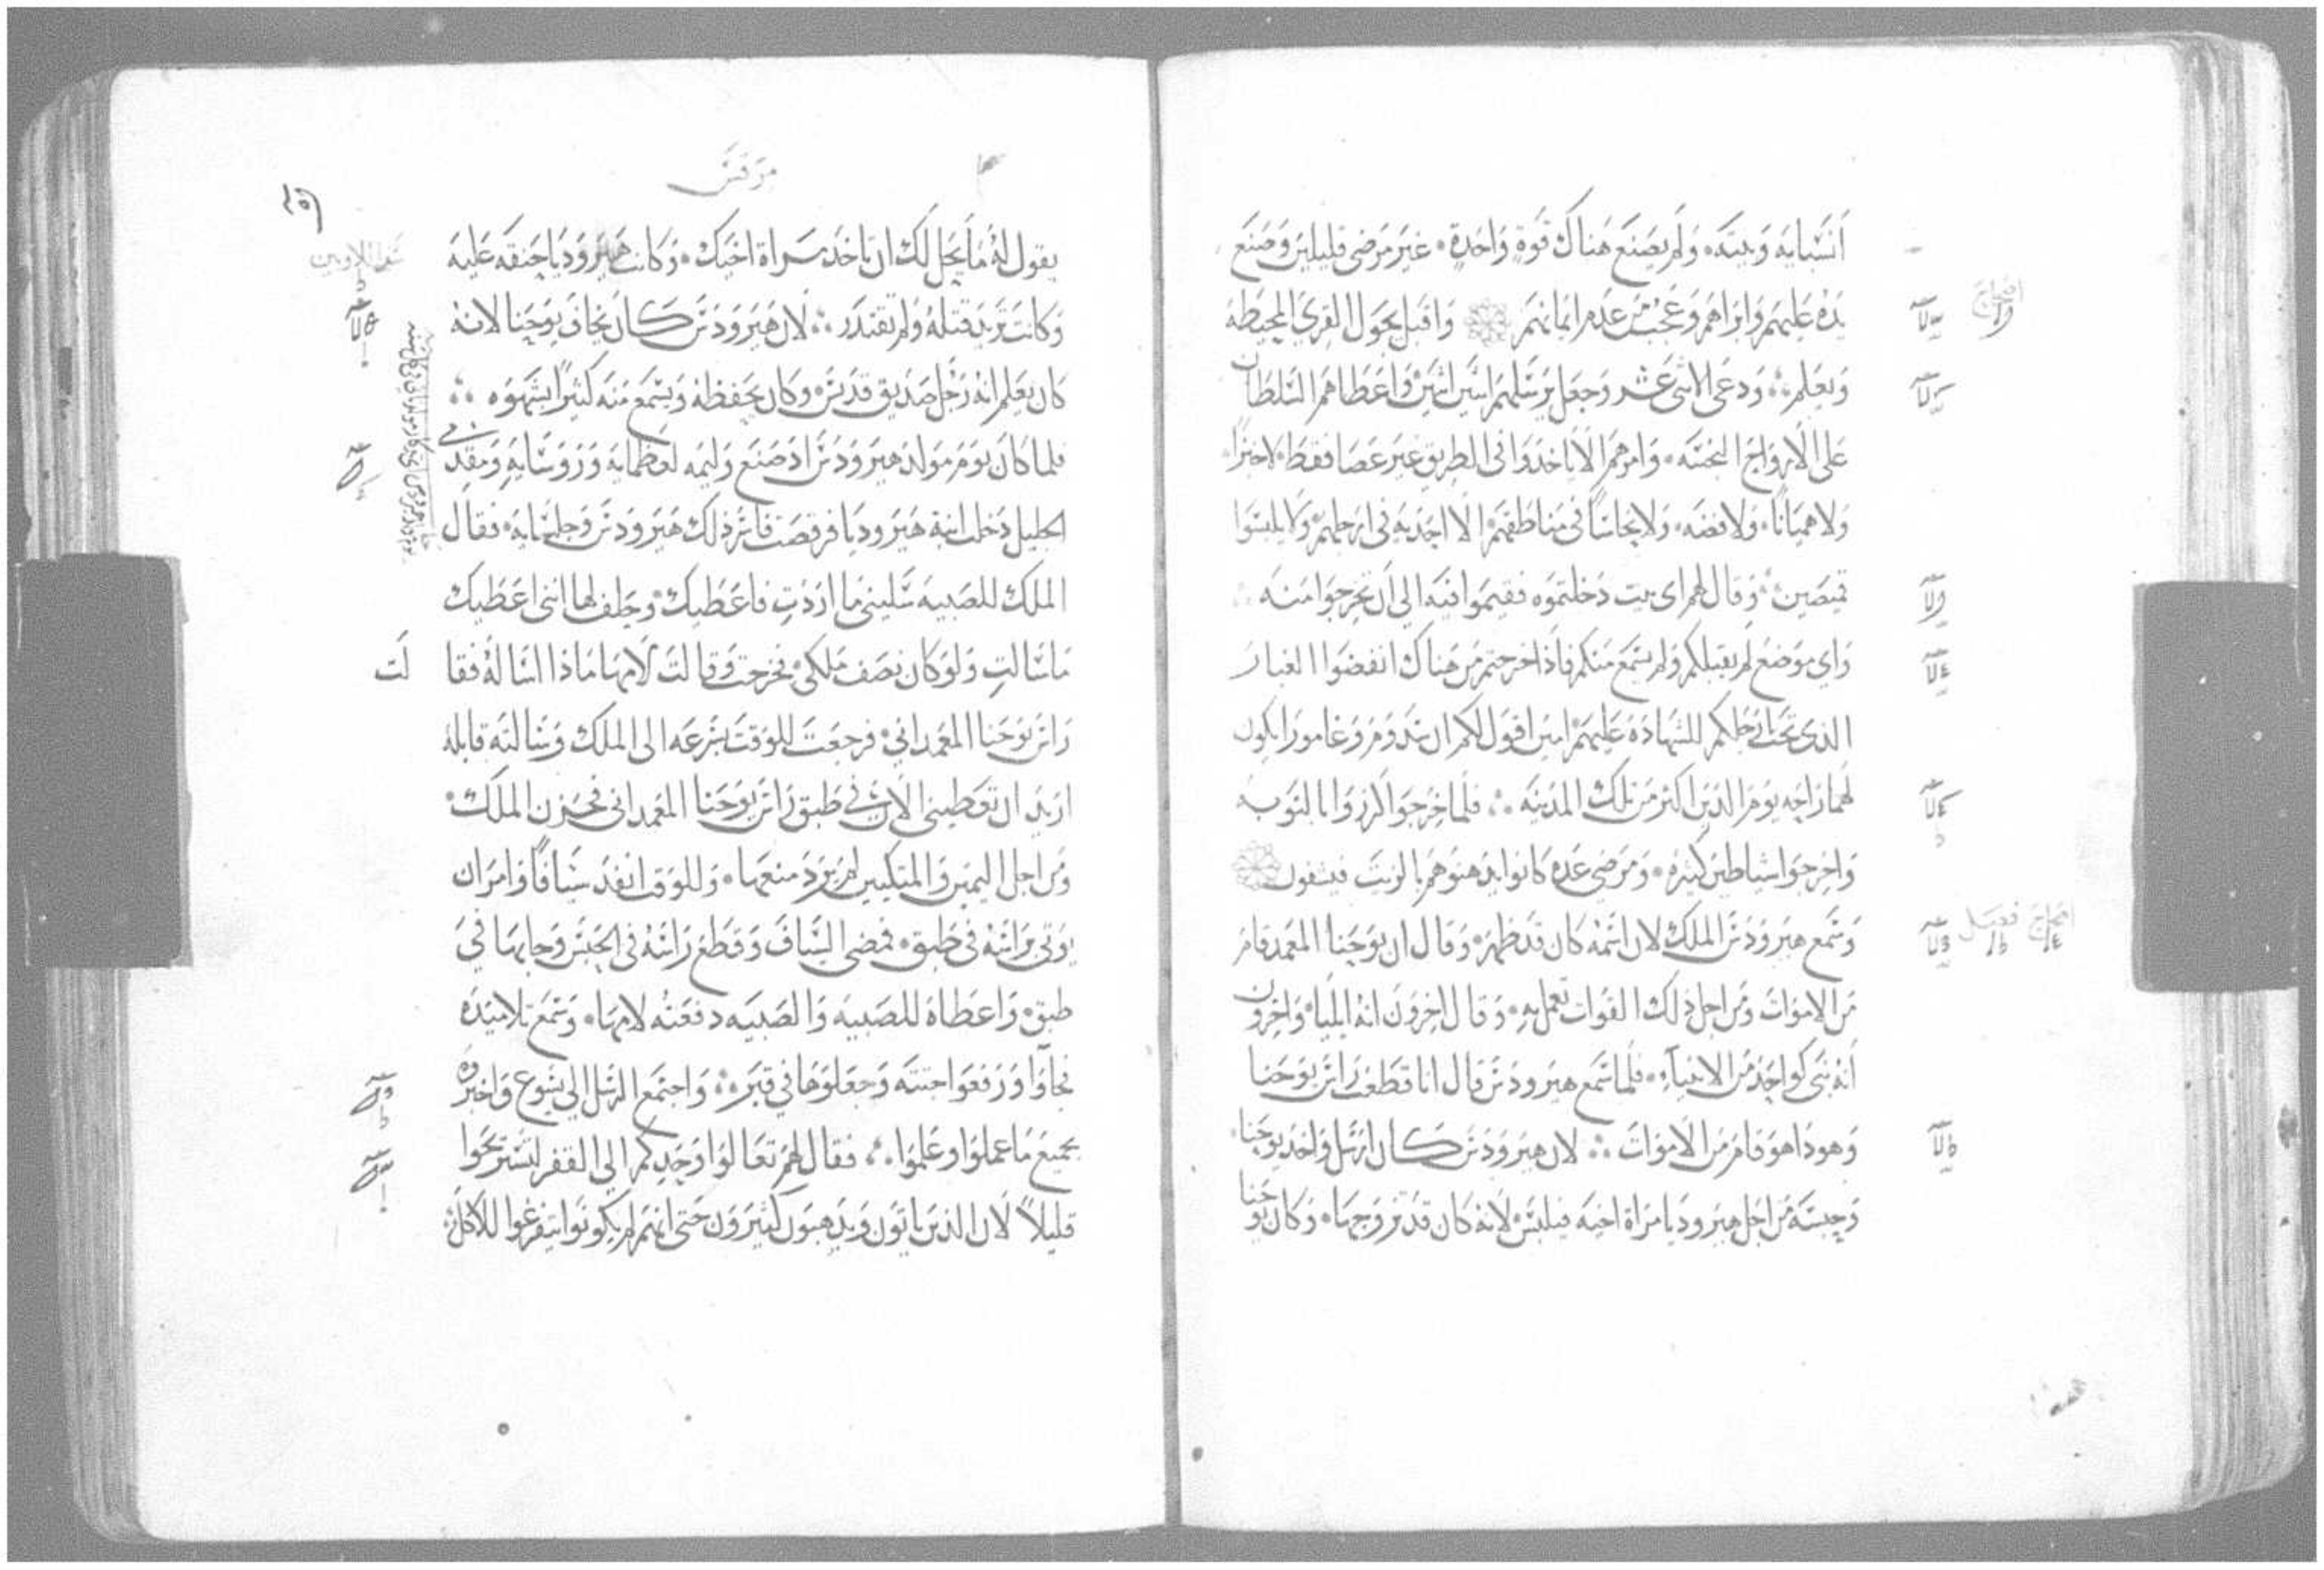 انسبايه وبيته، ولم يصنع هناك قوة واحدة، غير مرضى قليلين وضع
يده عليهم وابراهم وعجب من عدم ايمانهم واقبل يجول القرى المحيطة
ويعلم، ودعى الاثنى عشر وجعل يرسلهم اثنين اثنين واعطاهم السلطان
على الارواح النجسه، وامرهم الا ياخدوا فى الطريق غير عصا فقط لا خبزا
ولا هميانا، ولا فضه، ولا نحاسا فى مناطقهم الا احديه فى ارجلهم ولا يلبسوا
قميصين، وقال لهم اى بيت دخلتموه فقيموا فيه الى ان تخرجوا منه
واي موضع لم يقبلكم ولم يسمع منكم فاذا خرجتم من هناك انفضوا الغبار
الذى تحت ارجلكم للشهاده عليهم امين اقول لكم ان سدوم وغامورا يكون
لهما راحه يوم الدين اكثر من تلك المدينه، فلما خرجوا كرزوا بالتوبه
واخرجوا شياطين كثيره، ومرضى عده كانوا يدهنوهم بالزيت فيشفون
وسمع هيرودس الملك لان اسمه كان قد ظهر، وقال ان يوحنا المعمد قام
من الاموات ومن اجل ذلك القوات تعمل به، وقال اخرون انه ايليا، واخرون
انه نبى كواحد من الانبياء، فلما سمع هيرودس قال انا قطعت راس يوحنا
وهوذا هو قام من الاموات، لان هيرودس كان ارسل واخد يوحنا
وحبسه من اجل هيروديا مراة اخيه فيلبس لانه كان قد تزوجها، وكان يوحنا
مرقس
يقول له ما يحل لك ان تاخد مراة اخيك، وكانت هيروديا حنقه عليه
وكانت تريد قتله ولم تقتدر، لان هيرودس كان يخاف يوحنا لانه
كان يعلم انه رجل صديق قديس، وكان يحفظه ويسمع منه كثيرا بشهوه
فلما كان يوم مولد هيرودس اذ صنع وليمه لعظمايه وروسايه ومقدمى
الجليل دخلت ابنة هيروديا فرقصت فاسر ذلك هيرودس وجلسايه، فقال
الملك للصبيه سلينى ما اردت فاعطيك، وحلف لها اننى اعطيك
ما سالت ولو كان نصف ملكى، فخرجت وقالت لامها ماذا اساله فقالت
راس يوحنا المعمدانى، فرجعت للوقت بسرعه الى الملك وسالته قايله
اريد ان تعطينى الان فى طبق راس يوحنا المعمدانى فحزن الملك،
ومن اجل اليمين والمتكيين لم يرد منعها، وللوقت انفد سيافا وامر ان
يوتى براسه فى طبق، فمضى السياف وقطع راسه فى الحبس وجا بها في
طبق، واعطاه للصبيه والصبيه دفعته لامها، وسمع تلاميده
فجاوا ورفعوا جتته وجعلوها في قبر، واجتمع الرسل الى يسوع واخبروه
بجميع ما عملوا وعلموا، فقال لهم تعالوا وحدكم الى القفر لتستريحوا
قليلا لان الذين ياتون ويدهبون كثيرون حتى انهم لم يكونوا يتفرغوا للاكل،